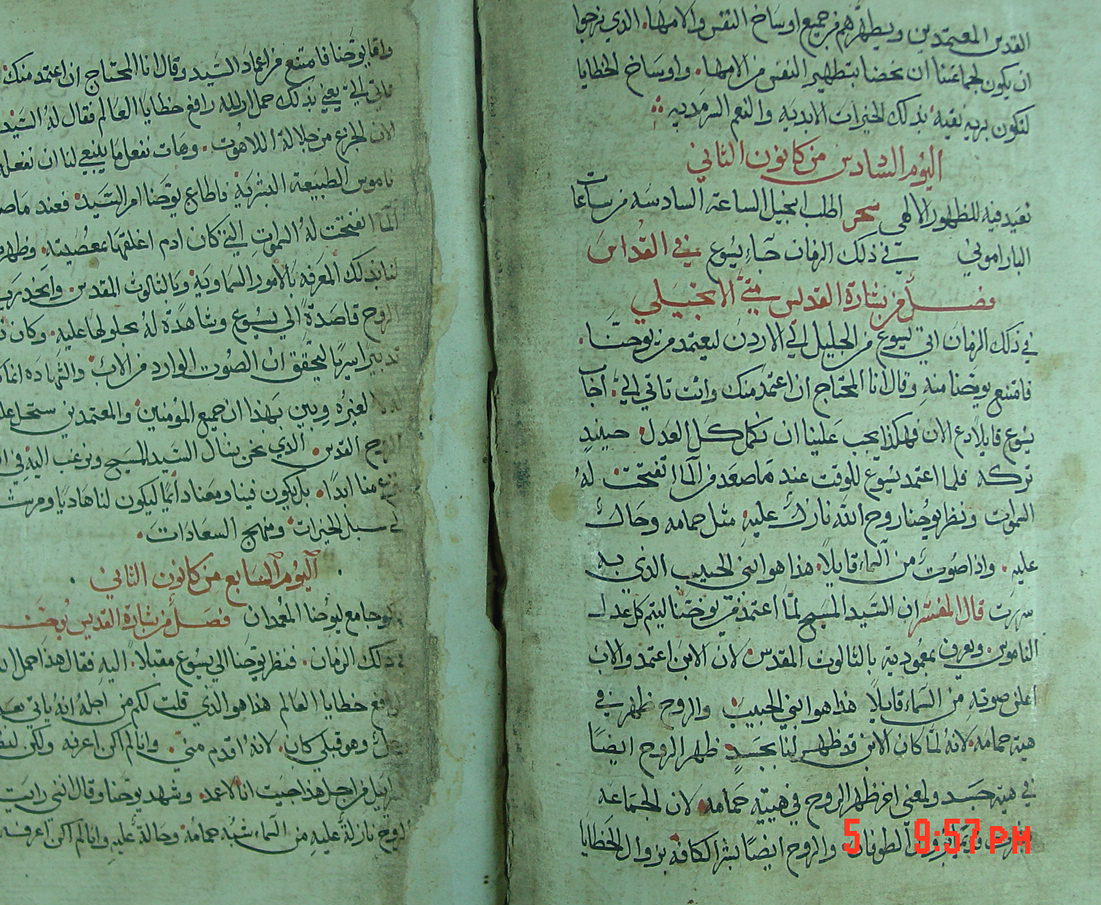 القدس المعتمدين ويطهرهم من جميع اوساخ النفس والامها. الذي نرجوا
ان يكون لجماعتنا ان يحضا بتطهير النفس من الامها. واوساخ الخطايا
لتكون بريه نقيه بذلك الخيرات الابديه والنعم السرمديه
اليوم السادس من كانون الثاني
نعيد فيه للظهور الالهي سحر اطلب انجيل الساعة السادسه من ساعات
البارامونى في ذلك الزمان جاء يسوع في القداس
فصل من بشارة القديس متي الانجيلي
في ذلك الزمان اتي يسوع من الجليل الي الاردن ليعتمد من يوحنا.
فامتنع يوحنا منه وقال انا المحتاج ان اعتمد منك وانت تاتي الي. اجاب
يسوع قايلا دع الان فهكذا يجب علينا ان نكمل كل العدل. حينيد
تركه فلما اعتمد يسوع للوقت عند ما صعد من الما انفتحت له
السموات ونظر يوحنا روح الله نازلا عليه مثل حمامه وحالا
عليه. واذا صوت من السماء قايلا. هذا هو ابني الحبيب الذي به
سررت قال المفسر ان السيد المسيح لما اعتمد من يوحنا ليتم كل عدل
الناموس. ويعرف بمعموديته بالثالوث المقدس. لان الابن اعتمد والاب
اعلن صوته من السماء قايلا هذا هو ابني الحبيب والروح ظهر في
هيه حمامه. لانه لما كان الابن قد ظهر لنا بجسد ظهر الروح ايضا
في هيه جسد ويلغى اخر ظهر الروح في هيية حمامه. لان الحمامه
الطوفان والروح ايضا بشر الكافه بزوال الخطايا
واما يوحنا فامتنع من اعماد السيد وقال انا المحتاج ان اعتمد منك
تاتي الي يعني بذلك حمل الله رافع خطايا العالم فقال له السيد
الان الجزع من جلالة اللاهوت. وهات نفعل ما ينبغي لنا ان نفعله
ناموس الطبيعة البشرية فاطاع يوحنا امر السيد. فعند ما صعد
الما انفتحت له السموات التي كان ادم اغلقها بمعصيته. وظهر
لنا بذلك المعرفه بالامور السماوية وبالثالوث المقدس. وانحدر
الروح قاصدة الي يسوع وشاهدة له بحلولها عليه. وكان
ليحقق ان الصوت الوارد من الاب والشهاده
لغيره وبين بهذا ان جميع المؤمنين والمعتمدين ستحل
الروح القدس. الذي نحن نسال السيد المسيح ونرغب اليه في
منا ابدا. بل يكون فينا ومعنا دايما ليكون لنا هاديا ومرشدا
في سبل الخيرات ومنهج السعادات.
اليوم السابع من كانون الثاني
جامع يوحنا المعمدان فصل من بشارة القديس يوحنا
في ذلك الزمان. نظر يوحنا الي يسوع مقبلا. اليه فقال هذا حمل
رافع خطايا العالم هذا هو الذي قلت لكم من اجله انه ياتي بعدي
رجل وهو قبلي كان. لانه اقدم مني. وانا لم اكن اعرفه ولكن
اسراييل من اجل هذا جيت انا لاعمد. وشهد يوحنا وقال انني رايت
الروح نازلة عليه من السماء شبه حمامه وحالة عليه وانا لم اكن اعرفه
5 9:57 PM